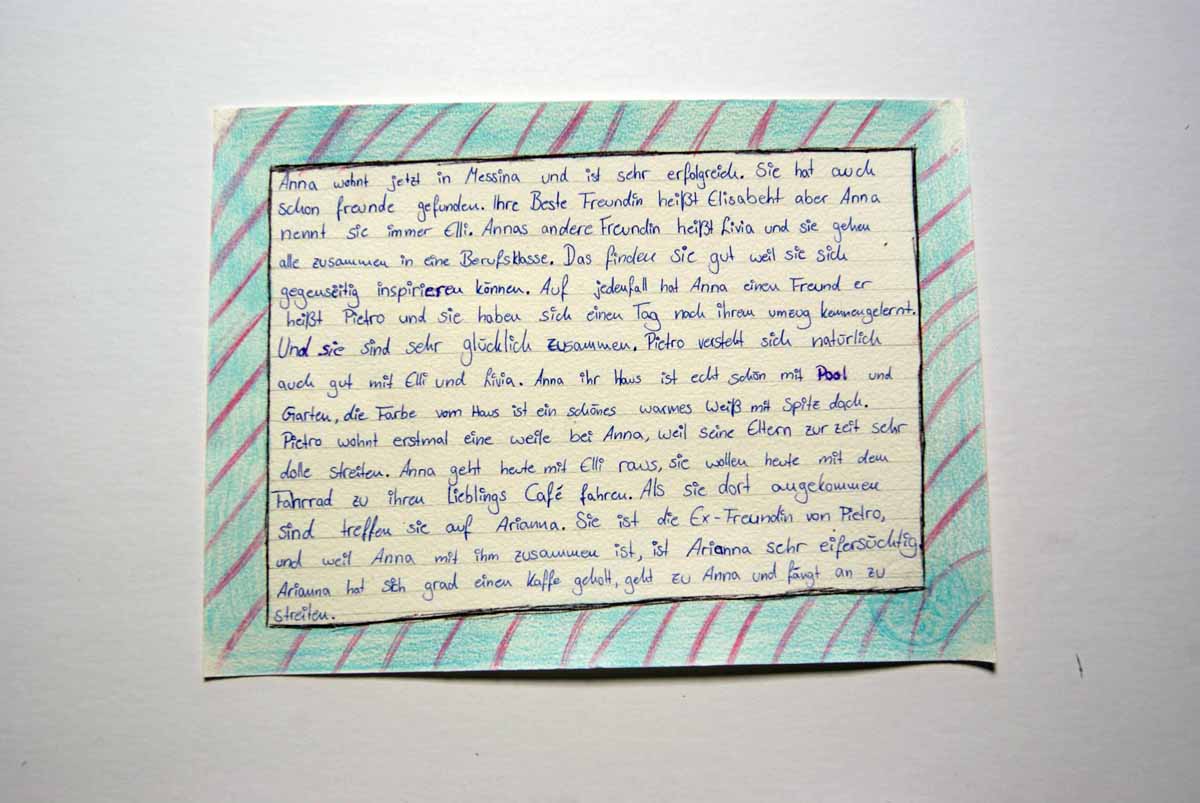 Anna wohnt jetzt in Messina und ist sehr erfolgreich. Sie hat auch
schon freunde gefunden. Ihre Beste Freundin heißt Elisabeht aber Anna
nennt sie immer Elli. Annas andere Freundin heißt Livia und sie gehen
alle zusammen in eine Berufsklasse. Das finden sie gut weil sie sich
gegenseitig inspirieren können. Auf jedenfall hat Anna einen Freund er
heißt Pietro und sie haben sich einen Tag nach ihrem umzug kennengelernt.
Und sie sind sehr glücklich zusammen. Pietro versteht sich natürlich
auch gut mit Elli und Livia. Anna ihr Haus ist echt schön mit Pool und
Garten, die Farbe vom Haus ist ein schönes warmes Weiß mit Spitz dach.
Pietro wohnt erstmal eine weile bei Anna, weil seine Eltern zur zeit sehr
dolle streiten. Anna geht heute mit Elli raus, sie wollen heute mit dem
Fahrrad zu ihren Lieblings Café fahren. Als sie dort angekommen
sind treffen sie auf Arianna. Sie ist die Ex-Freundin von Pietro,
und weil Anna mit ihm zusammen ist, ist Arianna sehr eifersüchtig.
Arianna hat sich grad einen Kaffe geholt, geht zu Anna und fängt an zu
streiten.